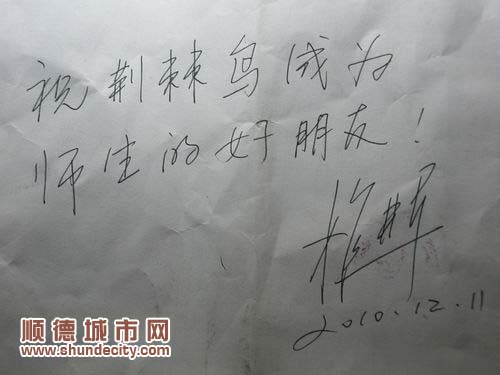 祝荆棘鸟成为
师生的好朋友！
2010.12.11
顺德城市网
www.shundecity.com